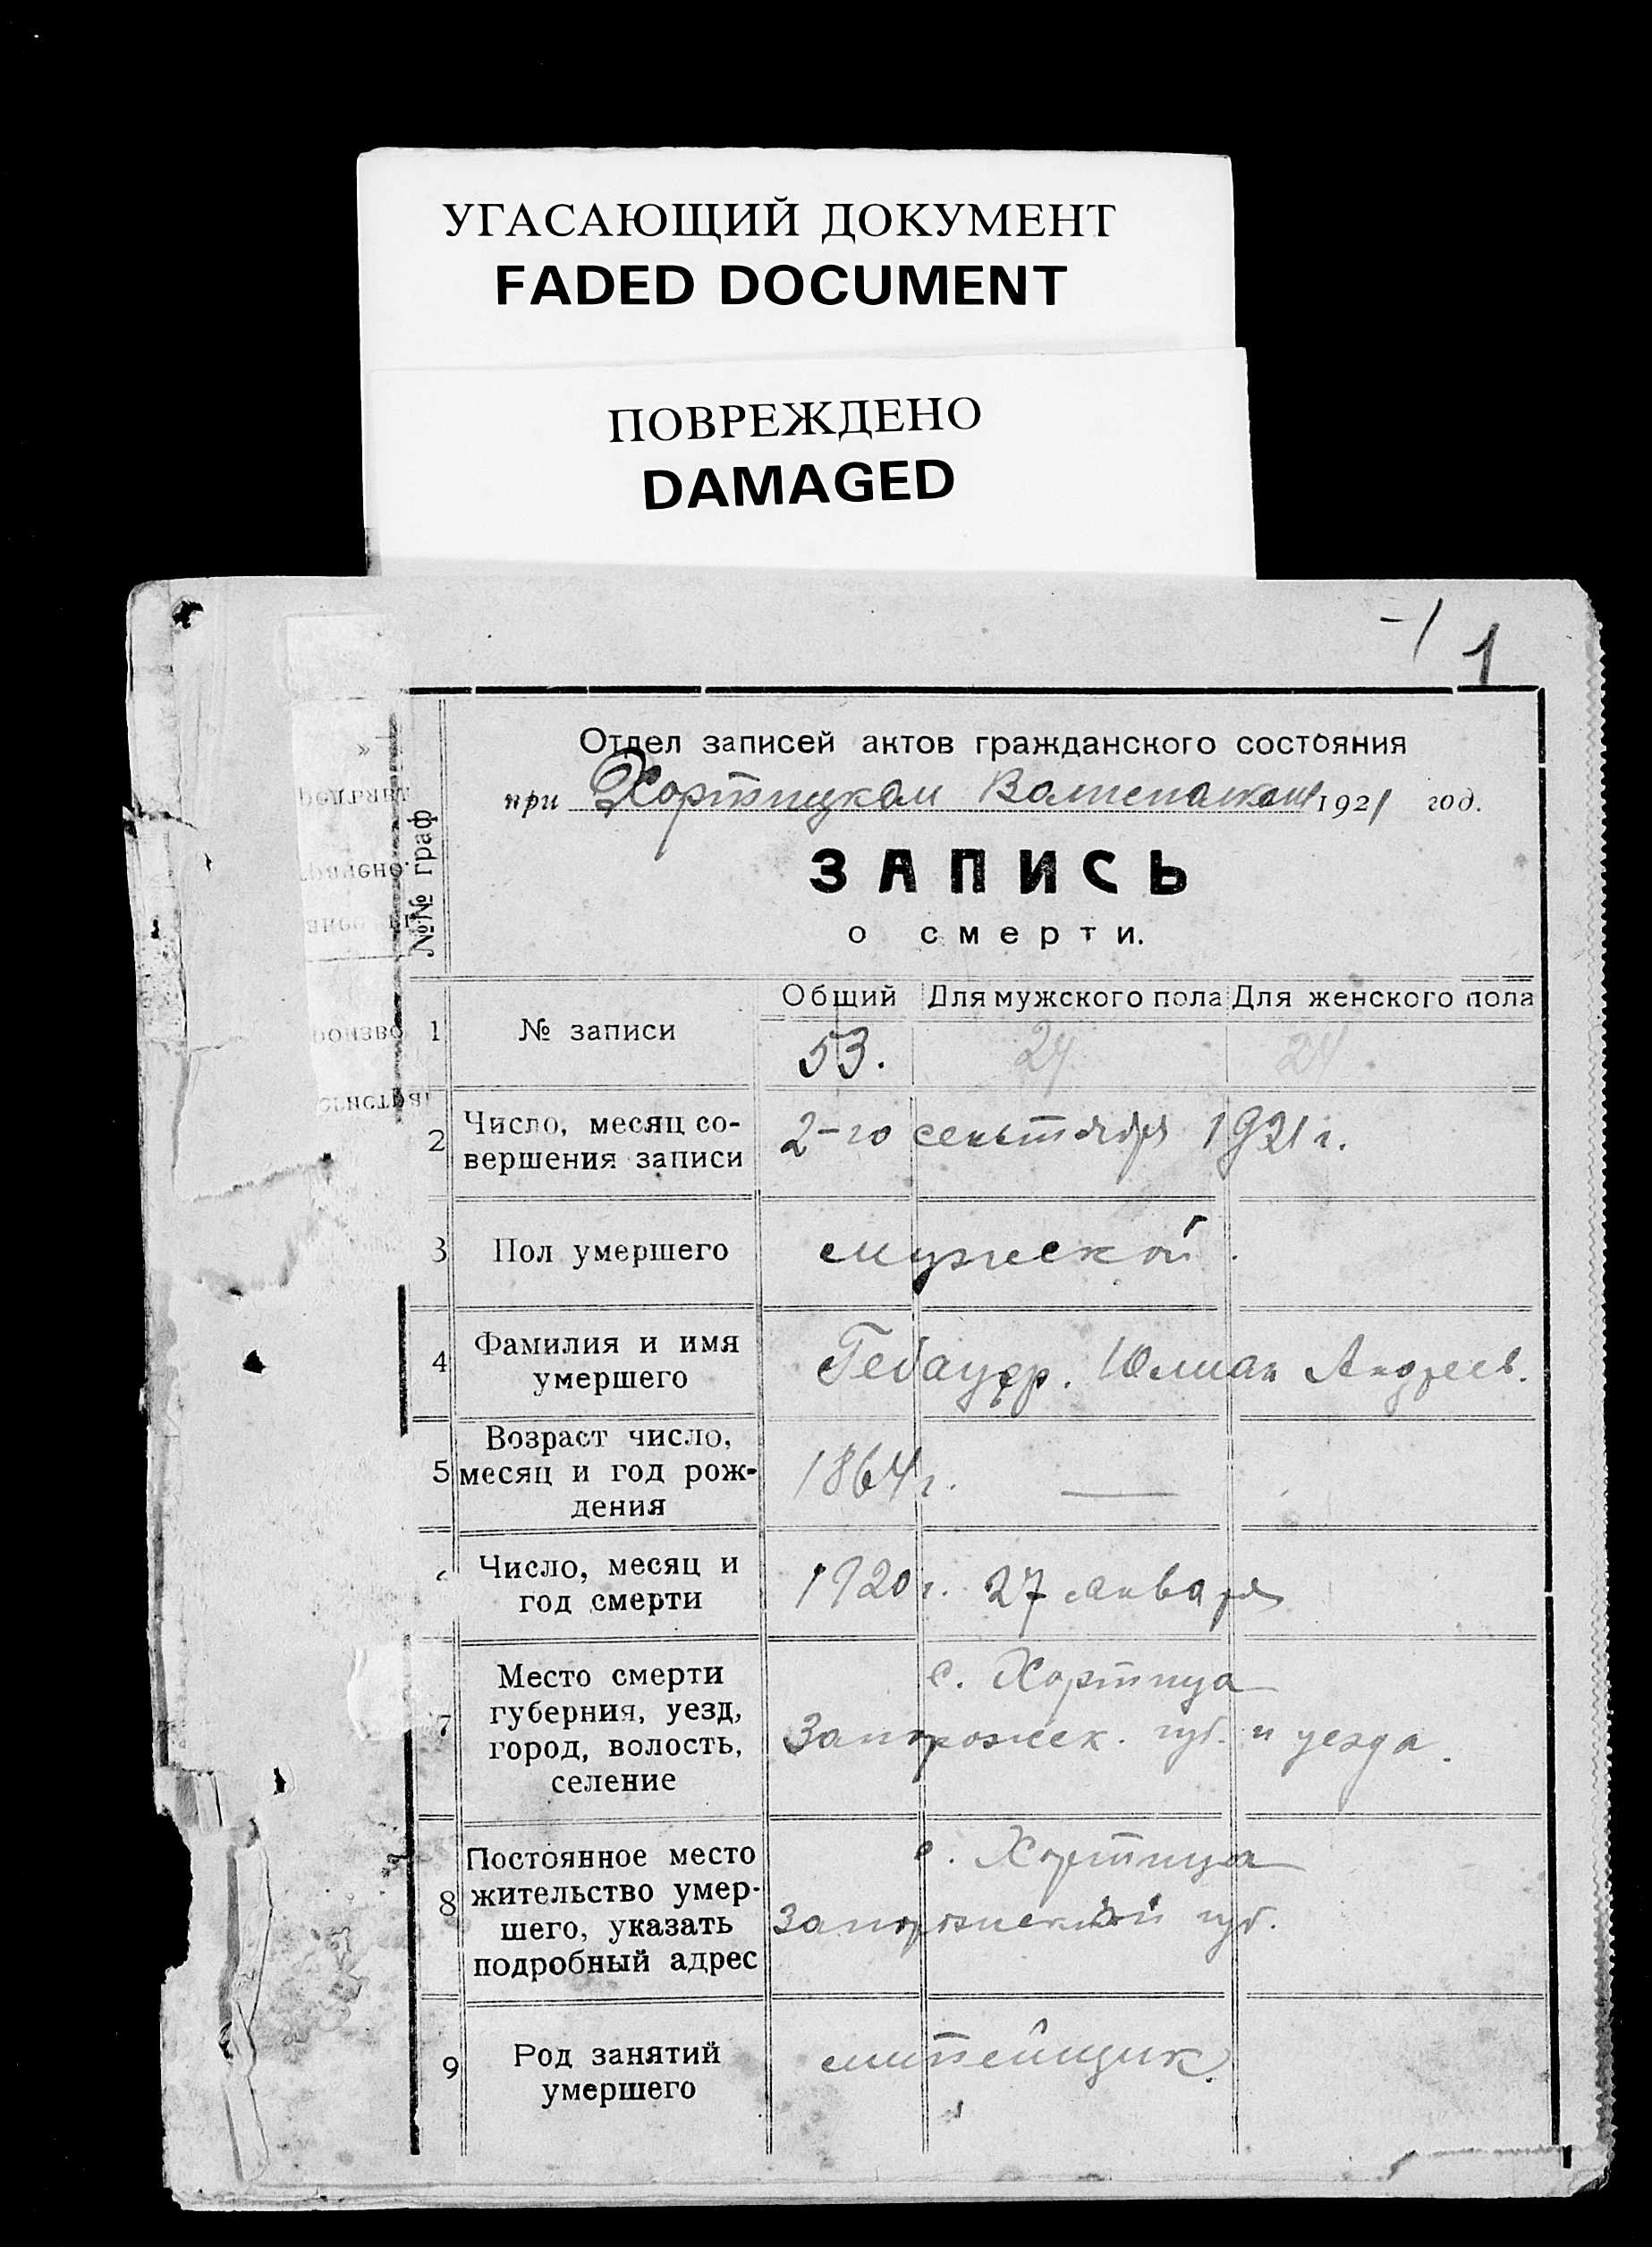 УГАСАЮЩИЙ ДОКУМЕНТ
FADED DOCUMENT
ПОВРЕЖДЕНО
DAMAGED
1
№№ граф
Отдел записей актов гражданского состояния
при Хортицком 1921 год.
ЗАПИСЬ
о смерти.
Общий Для мужского пола Для женского пола
1 № записи 53. 24 24
2 Число, месяц со-
вершения записи
2-го сентября 1921 г.
3 Пол умершего мужской.
4 Фамилия и имя
умершего
Гебауер. Юлиан Андреев.
5 Возраст число,
месяц и год рож-
дения
1864 г. —
Число, месяц и
год смерти
1920 г. 27 января
7 Место смерти
губерния, уезд,
город, волость,
селение
с. Хортица
Запорожск. губ. и уезда.
8 Постоянное место
жительство умер-
шего, указать
подробный адрес
с. Хортица
Запорожской губ.
9 Род занятий
умершего
литейщик.